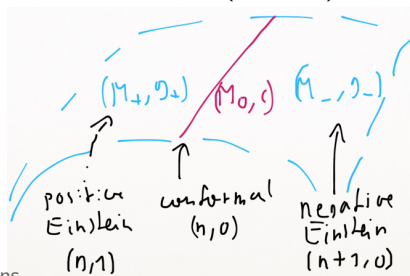 (M₊, g₊)
(M₀, c)
(M₋, g₋)
positive
Einstein
(n,1)
conformal
(n,0)
negative
Einstein
(n+1,0)